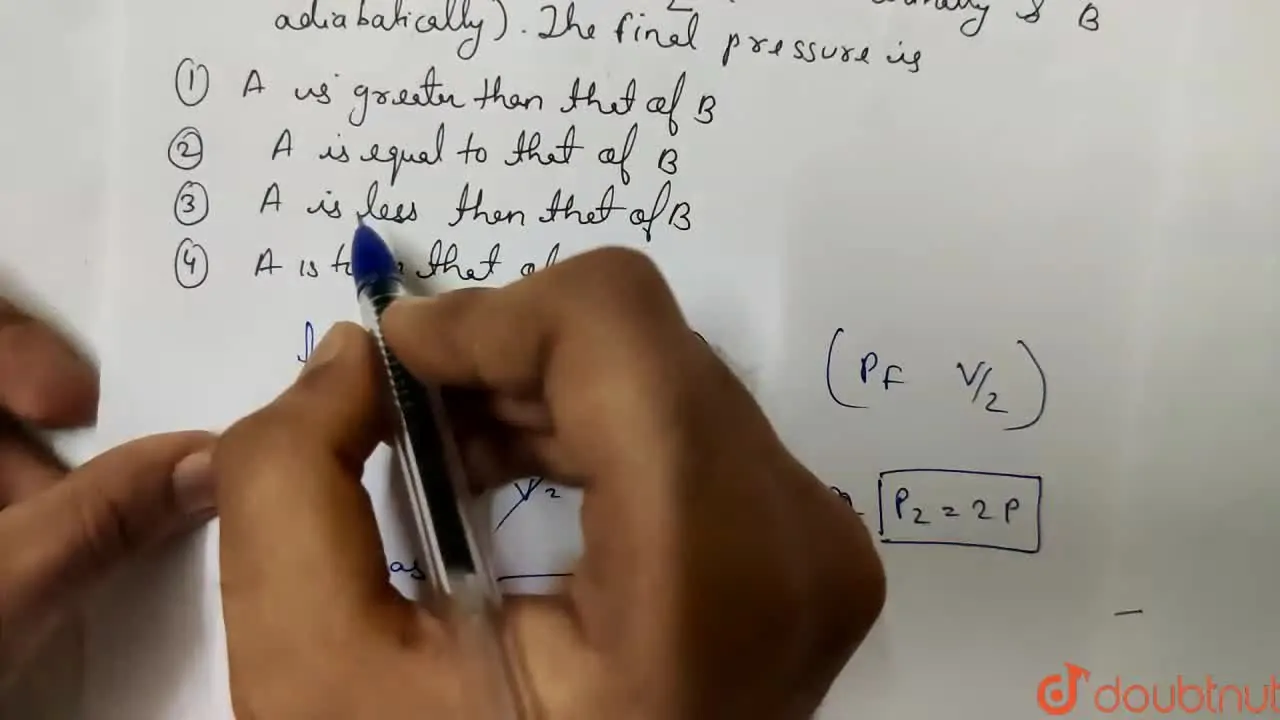 & B
adiabatically). The final pressure is
① A is greater than that of B
② A is equal to that of B
③ A is less then that of B
④ A is that of
(PF V/2)
V2
P2 = 2P
as
doubtnut